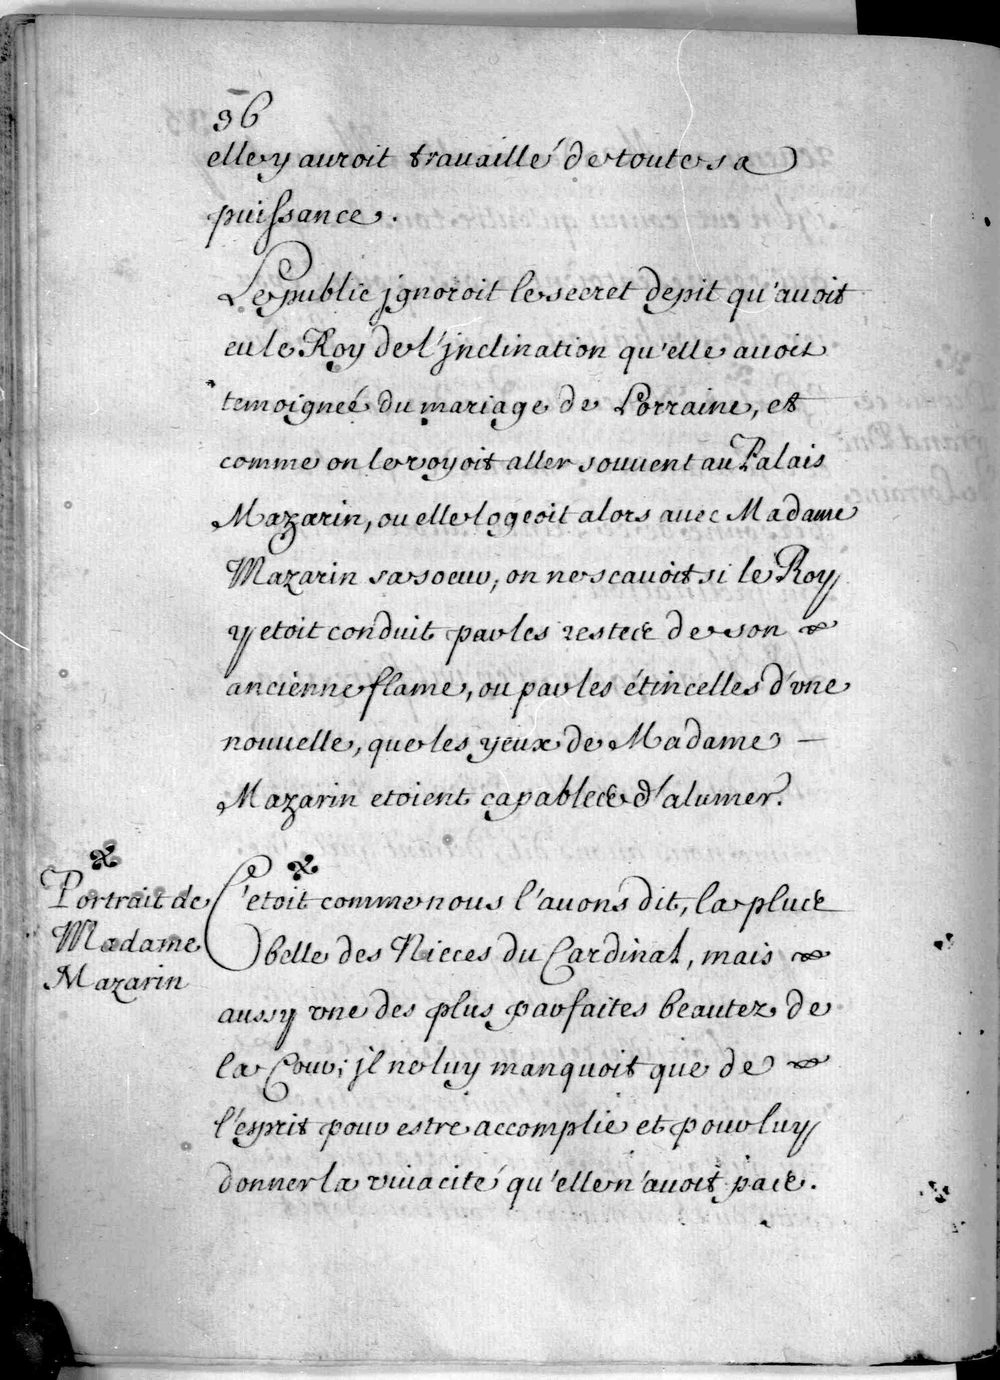 36
elle y auroit travaillé de toute sa
puissance.
Le public jgnoroit le secret depit qu'avoit
eu le Roy de l'jnclination qu'elle avoit
temoigneé du mariage de Lorraine, et
comme on le voyoit aller souuent au Palais
Mazarin, ou elle logeoit alors avec Madame
Mazarin sa soeur, on ne scavoit si le Roy
y etoit conduit par les restes de son
ancienne flame, ou par les étincelles d'vne
nouuelle, que les yeux de Madame —
Mazarin etoient capables d'alumer.
Portrait de
Madame
Mazarin
C'etoit comme nous l'avons dit, la plus
belle des Nieces du Cardinal, mais
aussy vne des plus parfaites beautez de
la Cour; jl ne luy manquoit que de
l'esprit pour estre accomplie et pour luy
donner la viuacité qu'elle n'avoit pas.